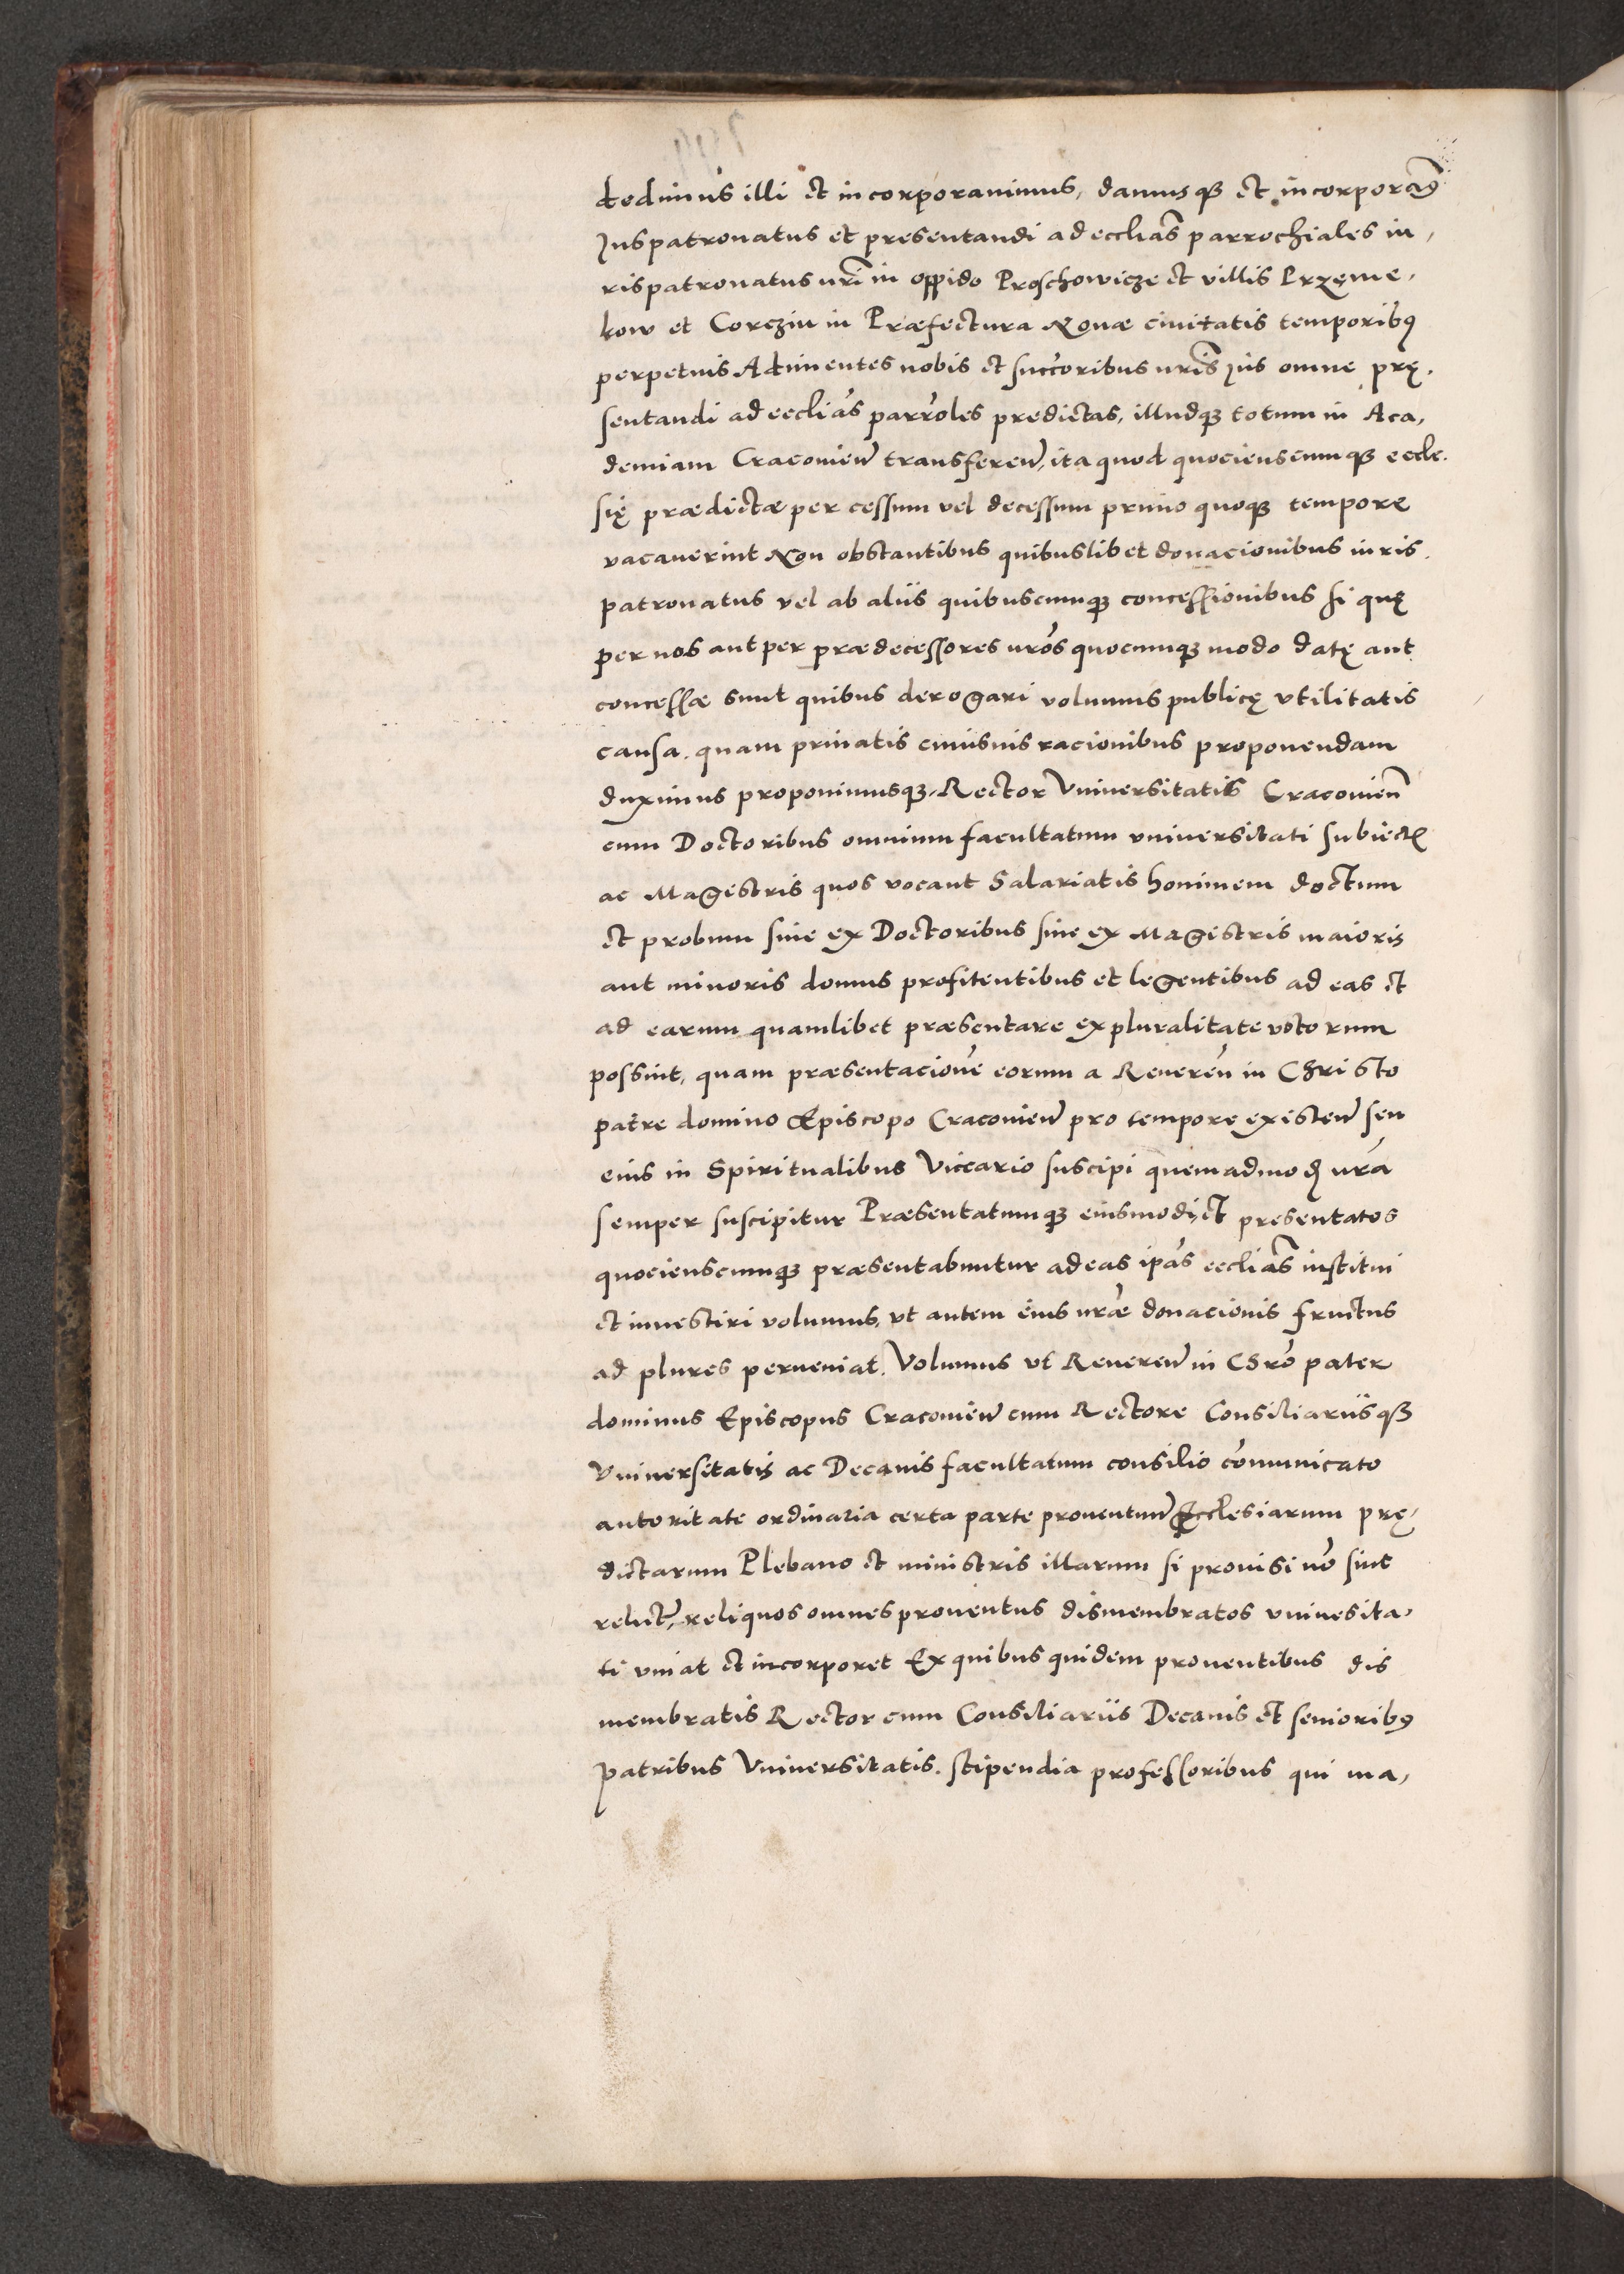 dedimus illi et incorporavimus, damusque et incorporam9
Jus patronatus et presentandi ad ecclias parrochiales iu,
ris patronatus nri in oppido Proschowicze et villis Przeme,
kow et Corczin in Præfectura Novæ civitatis temporib9
perpetuis Adimentes nobis et succoribus nris jus omne prę,
sentandi ad ecclias parroles predictas, illudque totum in Aca,
demiam Cracovien transferen, ita quod quociescumque eccle,
się prædictæ per cessum vel decessum primo quoque tempore
vacaverint Non obstantibus quibuslibet donacionibus iuris
patronatus vel ab aliis quibuscumque concessionibus si quę
per nos aut per prædecessores nros quocumque modo datę aut
concessæ sunt quibus derogari volumus publicę utilitatis
causa. quam privatis cuiusvis racionibus proponendam
duximus proponimusque. Rector Universitatis Cracovien
cum Doctoribus omnium facultatum universitati subiect
ac Magistris quos vocant Salariatis hominem doctum
et probum sive ex Doctoribus sive ex Magistris maioris
aut minoris domus profitentibus et legentibus ad eas et
ad earum quamlibet præsentare ex pluralitate votorum
possint, quam præsentacione eorum a Reveren in Christo
patre domino Episcopo Cracovien pro tempore existen seu
eius in Spiritualibus Viccario suscipi quemadmod nra
semper suscipitur Præsentatumque eiusmodi et presentatos
quociescumque præsentabuntur ad eas ipas ecclias institui
et investiri volumus, ut autem eius nræ donacionis fructus
ad plures perveniat. Volumus ut Reveren in Chro pater
dominus Episcopus Cracovien cum Rectore Consiliariisque
Universitatis ac Decanis facultatum consilio comunicato
autoritate ordinaria certa parte proventuum Ecclesiarum prę,
dictarum Plebano et ministris illarum si provisi no sint
relict, reliquos omnes proventus dismembratos univesita,
ti uniat et incorporet Ex quibus quidem proventibus dis
membratis Rector cum Consiliariis Decanis et seniorib9
patribus Universitatis. stipendia professoribus qui ma,